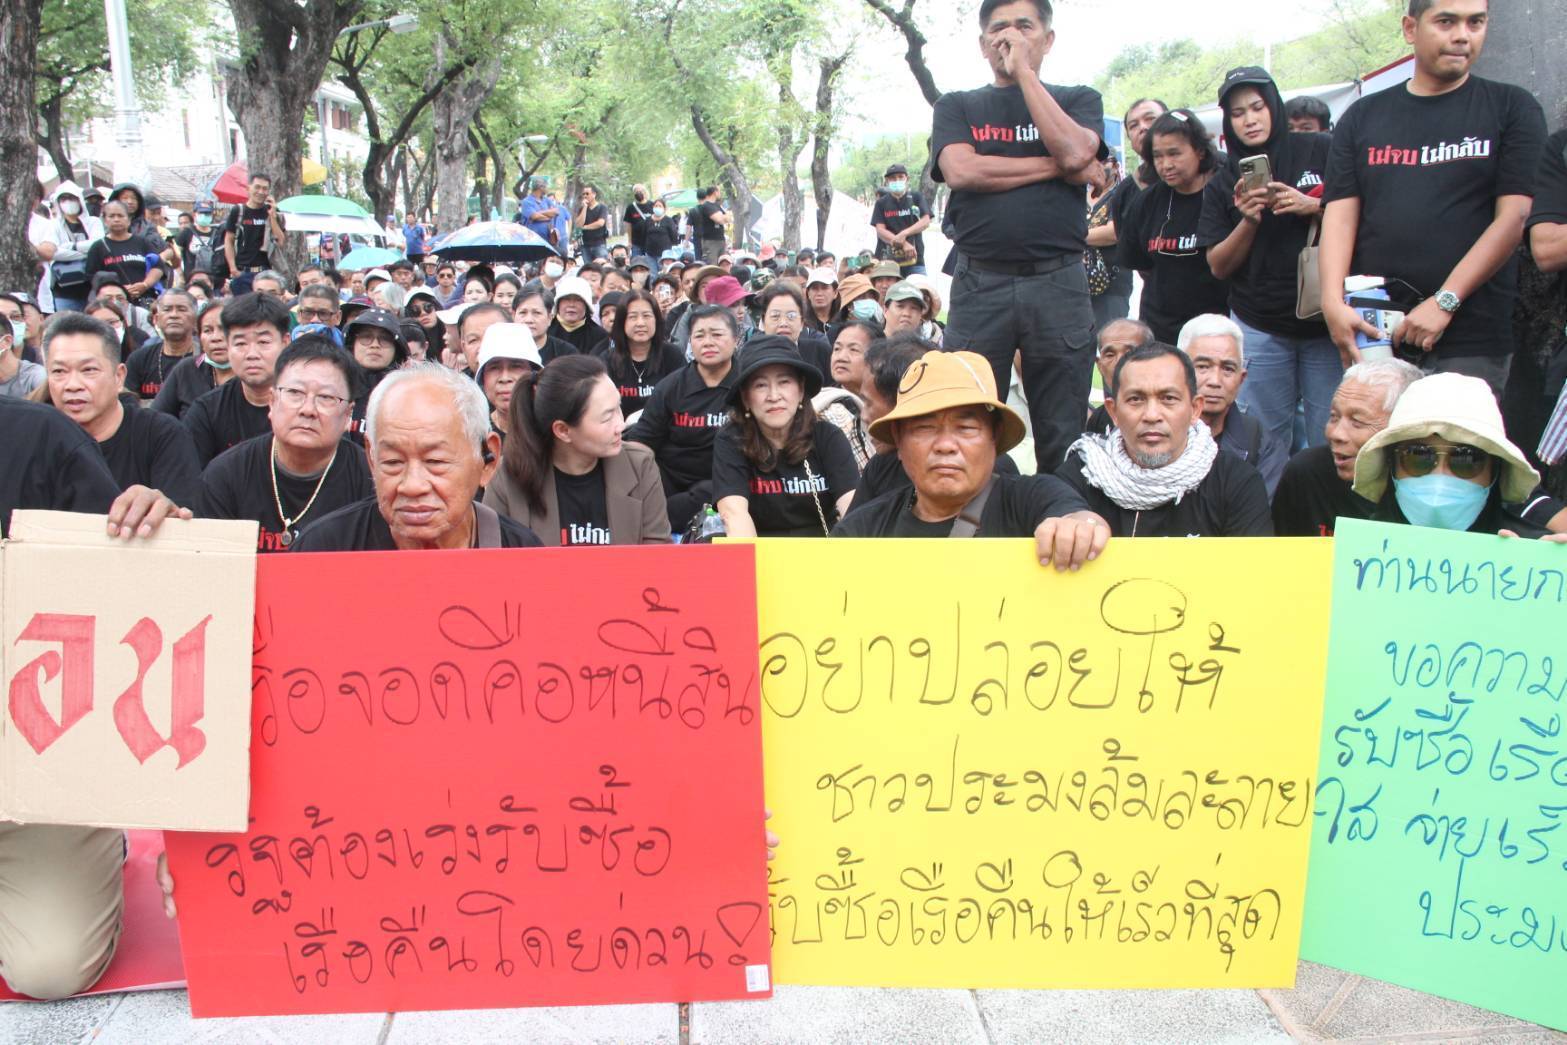 อน
เรือจอดคือหนี้สิน
รัฐต้องเร่งรับซื้อ
เรือคืนโดยด่วน!
อย่าปล่อยให้
ชาวประมงล้มละลาย
รับซื้อเรือคืนให้เร็วที่สุด
ท่านนายก
ขอความ
รับซื้อเรือ
ใส จ่ายเร็
ประมง
ไม่จบไม่กลับ
ไม่จบไม่กลับ
ไม่จบไม่กลับ
ไม่จบไม่กลับ